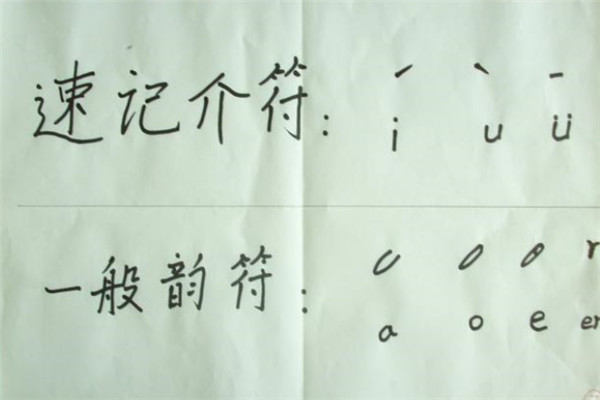 速记介符： ˊ ˋ ˉ
i u ü
一般韵符：
a o e er